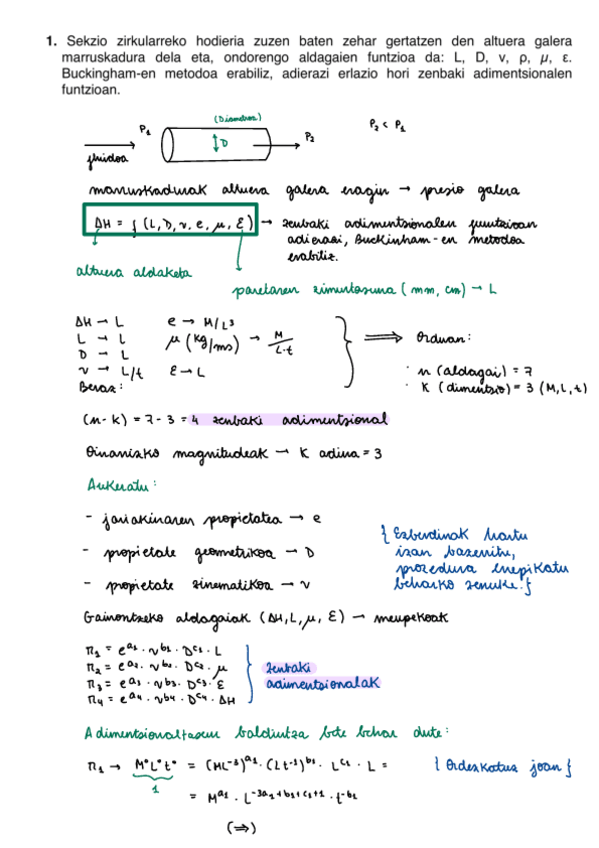 1. Sekzio zirkularreko hodieria zuzen baten zehar gertatzen den altuera galera
marruskadura dela eta, ondorengo aldagaien funtzioa da: L, D, v, ρ, μ, ε.
Buckingham-en metodoa erabiliz, adierazi erlazio hori zenbaki adimentsionalen
funtzioan.
(Diametroa)
P₁ D P₂ P₂ < P₁
fluidoa
marruskadurak altuera galera eragin → presio galera
ΔH = f (L, D, v, e, μ, ε) → zenbaki adimentsionalen funtzioan
adierazi, Buckinham-en metodoa
erabiliz.
altuera aldaketa
paretaren zimurtasuna (mm, cm) → L
ΔH → L e → M/L³
L → L μ (kg/ms) → M/L·t ⟹ Orduan:
D → L
v → L/t ε → L · n (aldagai) = 7
Beraz: · K (dimentsio) = 3 (M, L, t)
(n - k) = 7 - 3 = 4 zenbaki adimentsional
Oinarrizko magnitudeak → K adina = 3
Aukeratu:
- jariakinaren propietatea → e
- propietate geometrikoa → D
- propietate zinematikoa → v
{ Ezberdinak hartu
izan bazenitu,
prozedura errepikatu
beharko zenuke. }
Gainontzeko aldagaiak (ΔH, L, μ, ε) → menpekoak
π₁ = e^a₁ · v^b₁ · D^c₁ · L
π₂ = e^a₂ · v^b₂ · D^c₂ · μ
π₃ = e^a₃ · v^b₃ · D^c₃ · ε
π₄ = e^a₄ · v^b₄ · D^c₄ · ΔH
zenbaki
adimentsionalak
Adimentsionaltasun baldintza bete behar dute:
π₁ → M°L°t° = (ML⁻³)^a₁ · (Lt⁻¹)^b₁ · L^c₁ · L = { Ordezkatua joan }
1
= M^a₁ · L^-3a₁+b₁+c₁+1 · t^-b₁
(⇒)